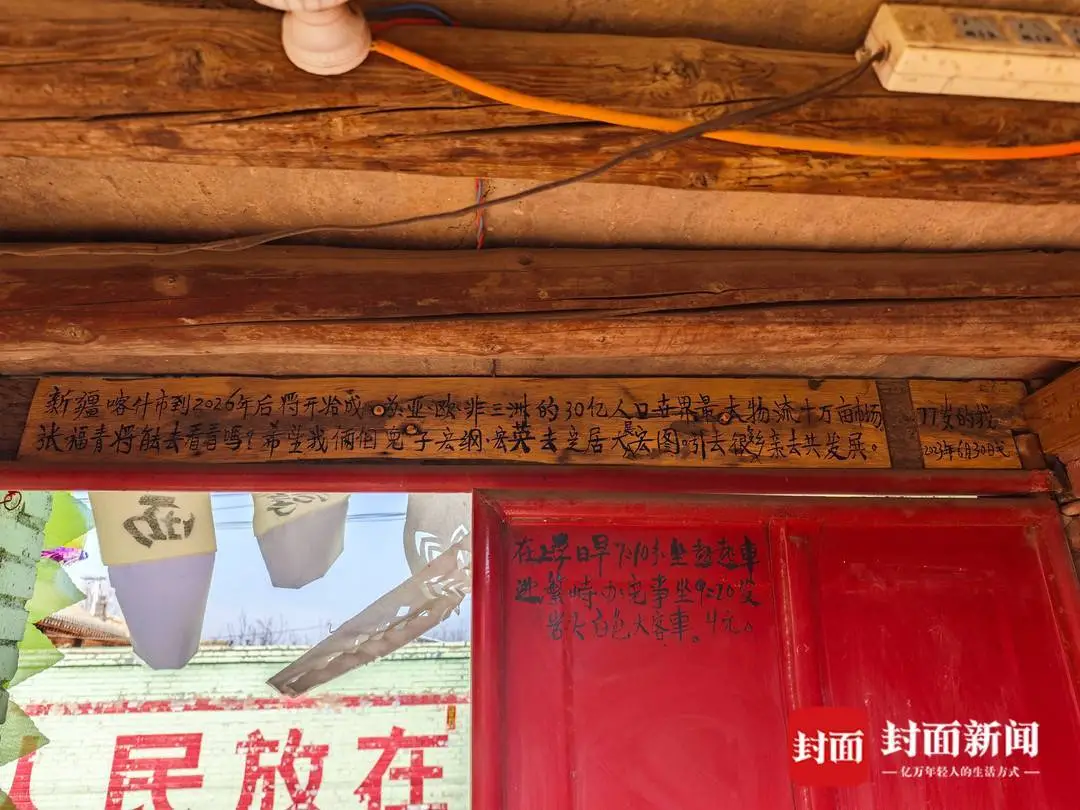 新疆喀什市到2026年后将开始成为亚·欧·非三洲的30亿人口世界最大物流十万亩市场
张福青将能去看看吗?希望我俩们电子宏纲·宏英去定居大展宏图·引去很乡亲去共发展。
77岁的我
2023年6月30日
在上学日早7:10分·坐赵赵車
进繁峙办宅事坐9=20发
岩头白色大客車。4元。
民放在
封面
封面新闻
亿万年轻人的生活方式